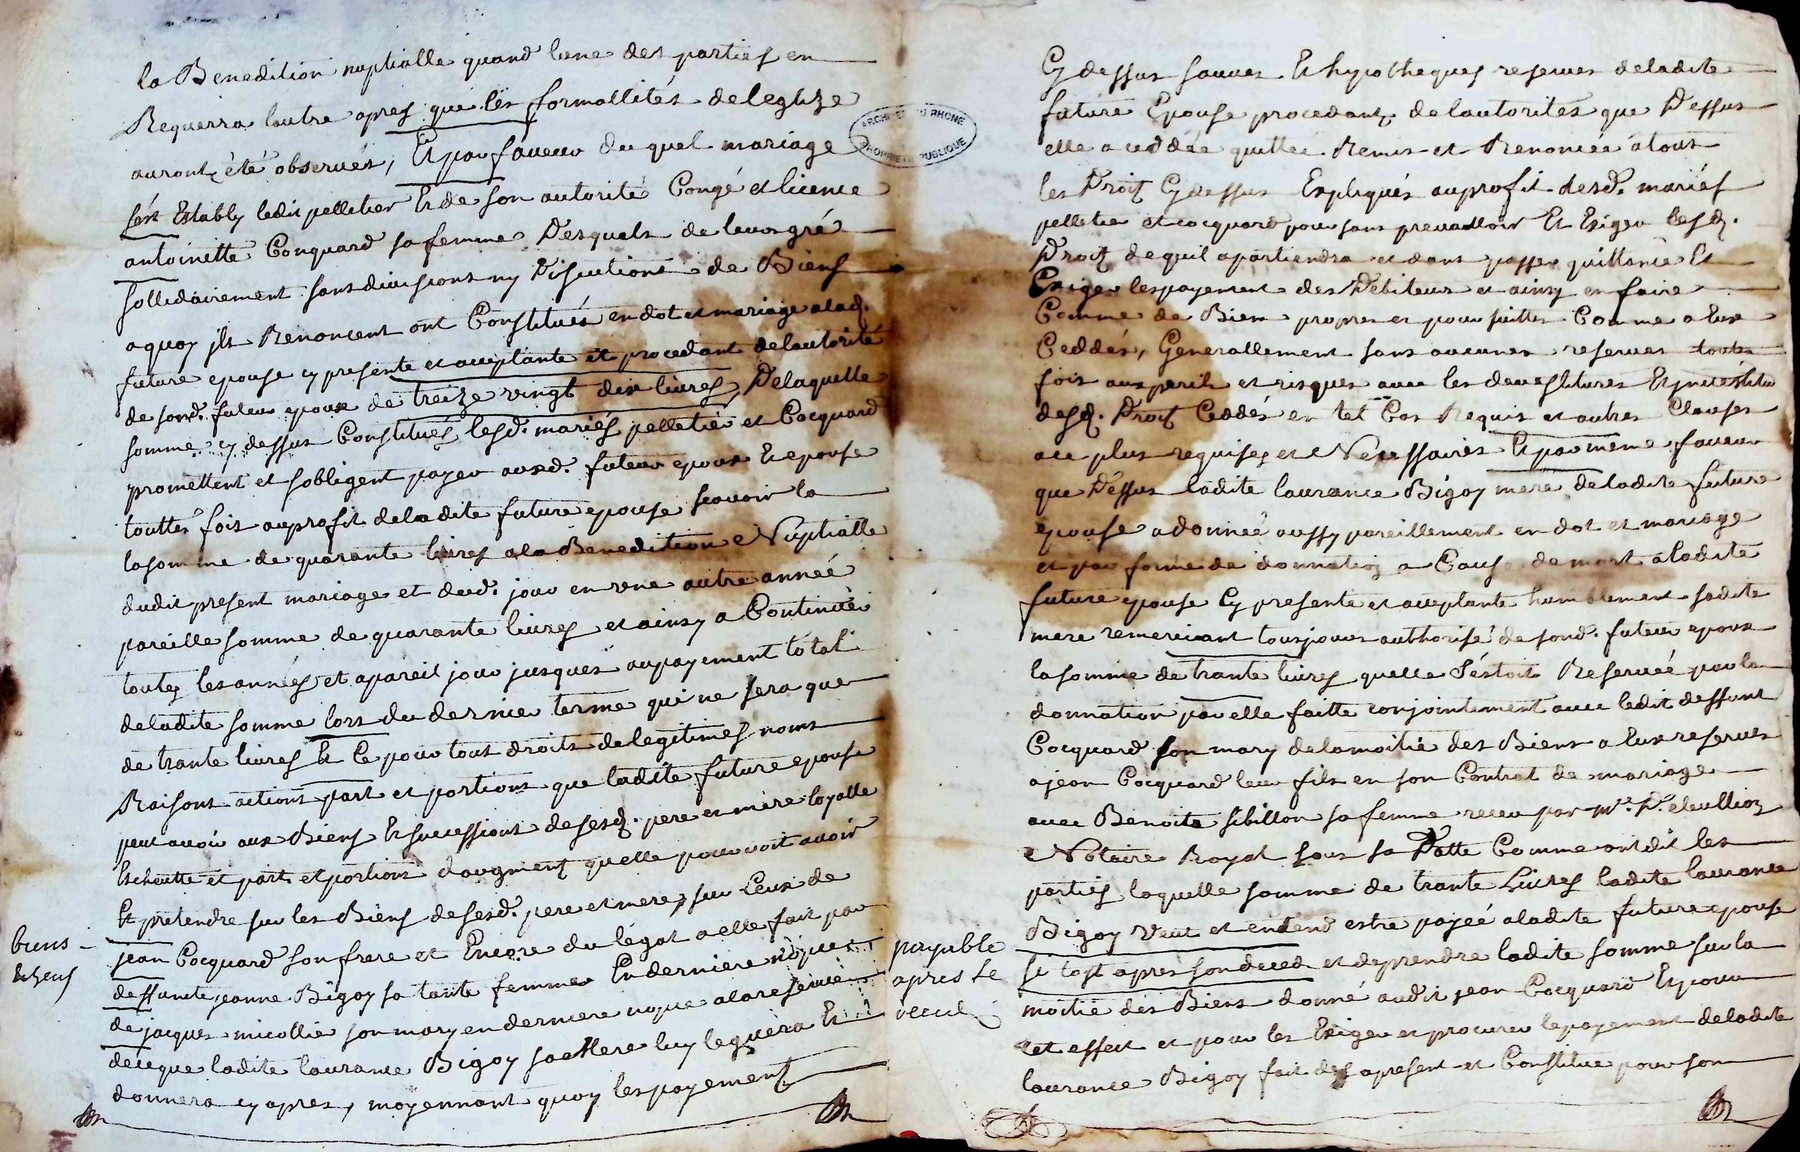 la Benedition nuptialle quand lune des parties en
Requerra lautre apres que les formallités deleglize
auront été observés, Et par faveur du quel mariage
sést Estably ledit pelletier Et de son autorité Congé et licence
antoinette Conquard sa femme Desquels de leur gré
sollidairement sans divisions ny Discutions de Biens
a quoy jls Renoncent ont Constitués en dot et mariage alad.
future epouse cy presente et acceptante et procedant delautorité
de sond. futeur epoux de treize vingt dix livres, Delaquelle
somme cy dessus Constitués lesd. mariés pelletier et Cocquard
promettent et sobligent payer ausd. futeur epoux Et epouse
touttes fois auproffit deladite future epouse scavoir la
lasomme de quarante livres ala Benedition Nuptialle
dudit present mariage et dud. jour en une autre année
pareille somme de quarante livres et ainsy a Continuer
toutes les années et apareil jour jusques aupayement total
deladite somme lors du dernier terme qui ne sera que
de trante livres Et Ce pour tous droits delegitimes noms
Raisons actions part et portions que ladite future epouse
peut avoir aux Biens Et successions de sesd. pere et mere loyalle
Escheutte et part et portions daugment quelle pouvoit avoir
Et pretendre sur les Biens de sesd. pere et mere, sur Ceux de
jean Cocquard son frere et Encore du légat a elle fait par
deffunte jeanne Bigoy sa tante femme En derniere nopce
de jacques micollier son mary en derniere nopce alareserve
deceque ladite laurance Bigoy sa mere luy leguera Et
donnera cy apres, moyennant quoy les payement
biens
Cy dessus sauves Et hypotheques reserves deladite
future Epouse procedant delautorités que Dessus
elle a ceddée quittée Remis et Renoncée á tous
les Droit Cy dessus Expliqués auprofit desd. mariés
pelletier et cocquard pour sans prevalloir Et Exiger lesd.
Droit dequil apartiendra et dans passer quittance Et
Exiger lespayement des Debiteurs et ainsy en faire
Comme de Biens propres et pour jceux Comme a Eux
Ceddés, Generallement sans aucunes reserves toutes
fois aux perils et risques avec les
desd. Droit Ceddés en tel Cas Requis et autres Clauses
ace plus requises et Necessaires Et par meme faveur
que Dessus ladite laurance Bigoy mere deladite future
epouse adonnée aussy pareillement en dot et mariage
et par forme de donnation a Cause de mort aladite
future epouse Cy presente et acceptante humblement sadite
mere remerciant tousjours authorisé de sond. futeur epoux
lasomme de trante livres quelle séstoit Reservée par la
donnation par elle faitte conjointement avec ledit deffunt
Cocquard son mary delamoitié des Biens a Eux reserves
ajean Cocquard leur fils en son Contrat de mariage
avec Benoite sibillon sa femme receu par Me.
Notaire Royal sous sa Datte Comme ont dit les
parties laquelle somme de trante Livres ladite laurance
Bigoy veut et entend estre payeé aladite future epouse
si tost apres son deced et deprendre ladite somme sur la
moitié des Biens donné audit jean Cocquard Et pour
cet effect et pour les Exiger et procurer lepayement deladite
laurance Bigoy fait des apresent et Constitue pour son
payable
apres le
ARCHIVES DU RHONE
PROPRIETE PUBLIQUE